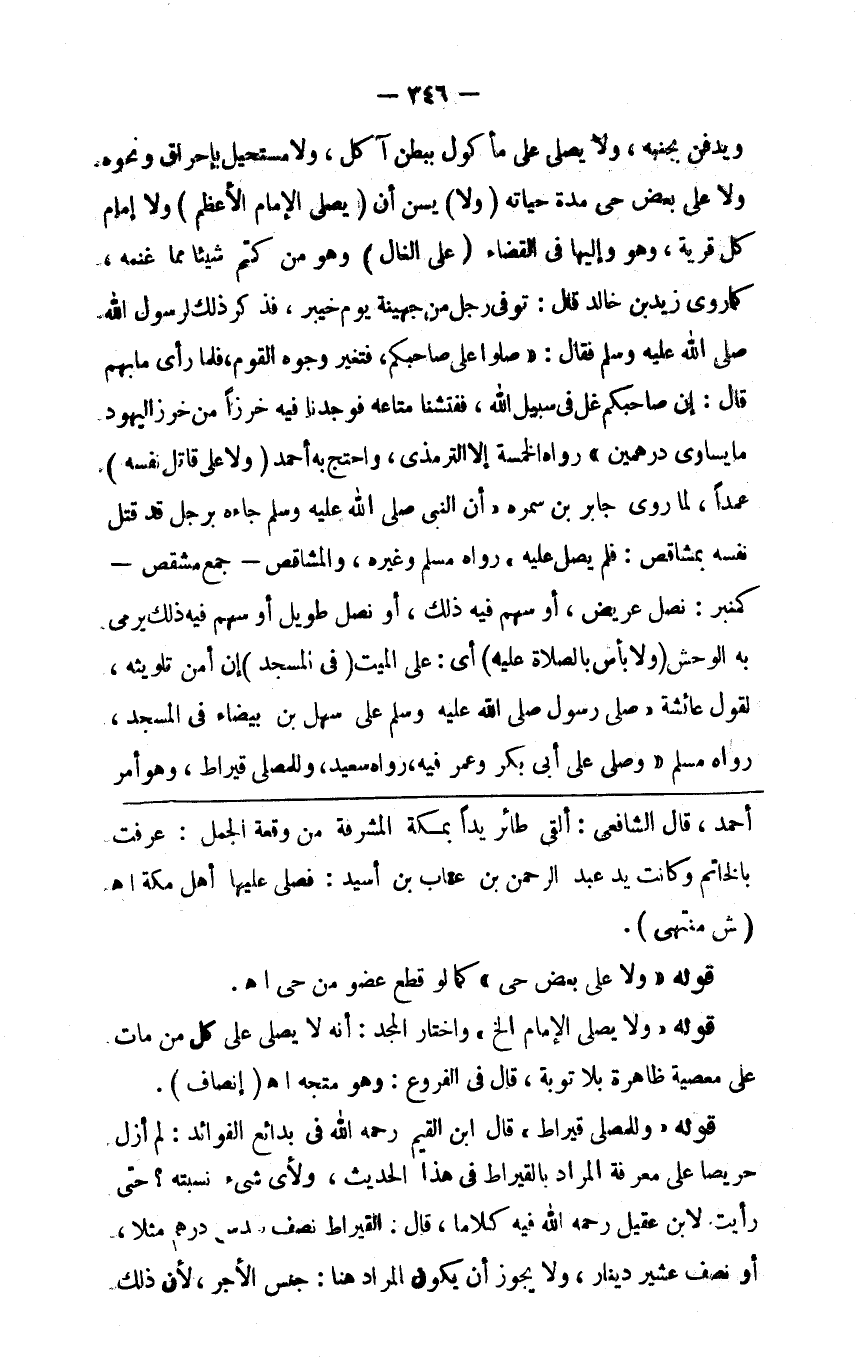 — ٣٤٦ —
ويدفن بجنبه ، ولا يصلى على مأكول ببطن آكل ، ولا مستحيل بإحراق ونحوه.
ولا على بعض حى مدة حياته ( ولا) يسن أن ( يصلى الإمام الأعظم ) ولا إمام
كل قرية ، وهو واليها فى القضاء ( على الغال ) وهو من كتم شيئا مما غنمه ،
كما روى زيد بن خالد قال : توفى رجل من جهينة يوم خيبر ، فذكر ذلك لرسول الله
صلى الله عليه وسلم فقال : « صلوا على صاحبكم، فتغير وجوه القوم، فلما رأى ما بهم
قال : إن صاحبكم غل فى سبيل الله ، ففتشنا متاعه فوجدنا فيه خرزاً من خرز اليهود
ما يساوى درهمين » رواه الخمسة إلا الترمذى ، واحتج به أحمد ( ولا على قاتل نفسه ).
عمداً ، لما روى جابر بن سمره « أن النبى صلى الله عليه وسلم جاءه برجل قد قتل
نفسه بمشاقص : فلم يصل عليه » رواه مسلم وغيره ، والمشاقص — جمع مشقص —
كمنبر : نصل عريض ، أو سهم فيه ذلك ، أو نصل طويل أو سهم فيه ذلك يرمى
به الوحش (ولا بأس بالصلاة عليه) أى : على الميت ( فى المسجد ) إن أمن تلويثه ،
لقول عائشة « صلى رسول صلى الله عليه وسلم على سهل بن بيضاء فى المسجد ،
رواه مسلم « وصلى على أبى بكر وعمر فيه، رواه سعيد، وللمصلى قيراط ، وهو أمر
أحمد ، قال الشافعى : ألقى طائر يداً بمكة المشرفة من وقعة الجمل : عرفت
بالخاتم وكانت يد عبد الرحمن بن عتاب بن أسيد : فصلى عليها أهل مكة ا ه
( ش منتهى ) .
قوله « ولا على بعض حى » كما لو قطع عضو من حى ا ه .
قوله « ولا يصلى الإمام الخ » واختار المجد : أنه لا يصلى على كل من مات
على معصية ظاهرة بلا توبة ، قال فى الفروع : وهو متجه ا ه ( إنصاف ) .
قوله « وللمصلى قيراط » قال ابن القيم رحمه الله فى بدائع الفوائد : لم أزل
حريصا على معرفة المراد بالقيراط فى هذا الحديث ، ولأى شىء نسبته ؟ حتى
رأيت لابن عقيل رحمه الله فيه كلاما ، قال : القيراط نصف سدس درهم مثلا ،
أو نصف عشير دينار ، ولا يجوز أن يكون المراد هنا : جنس الأجر ، لأن ذلك